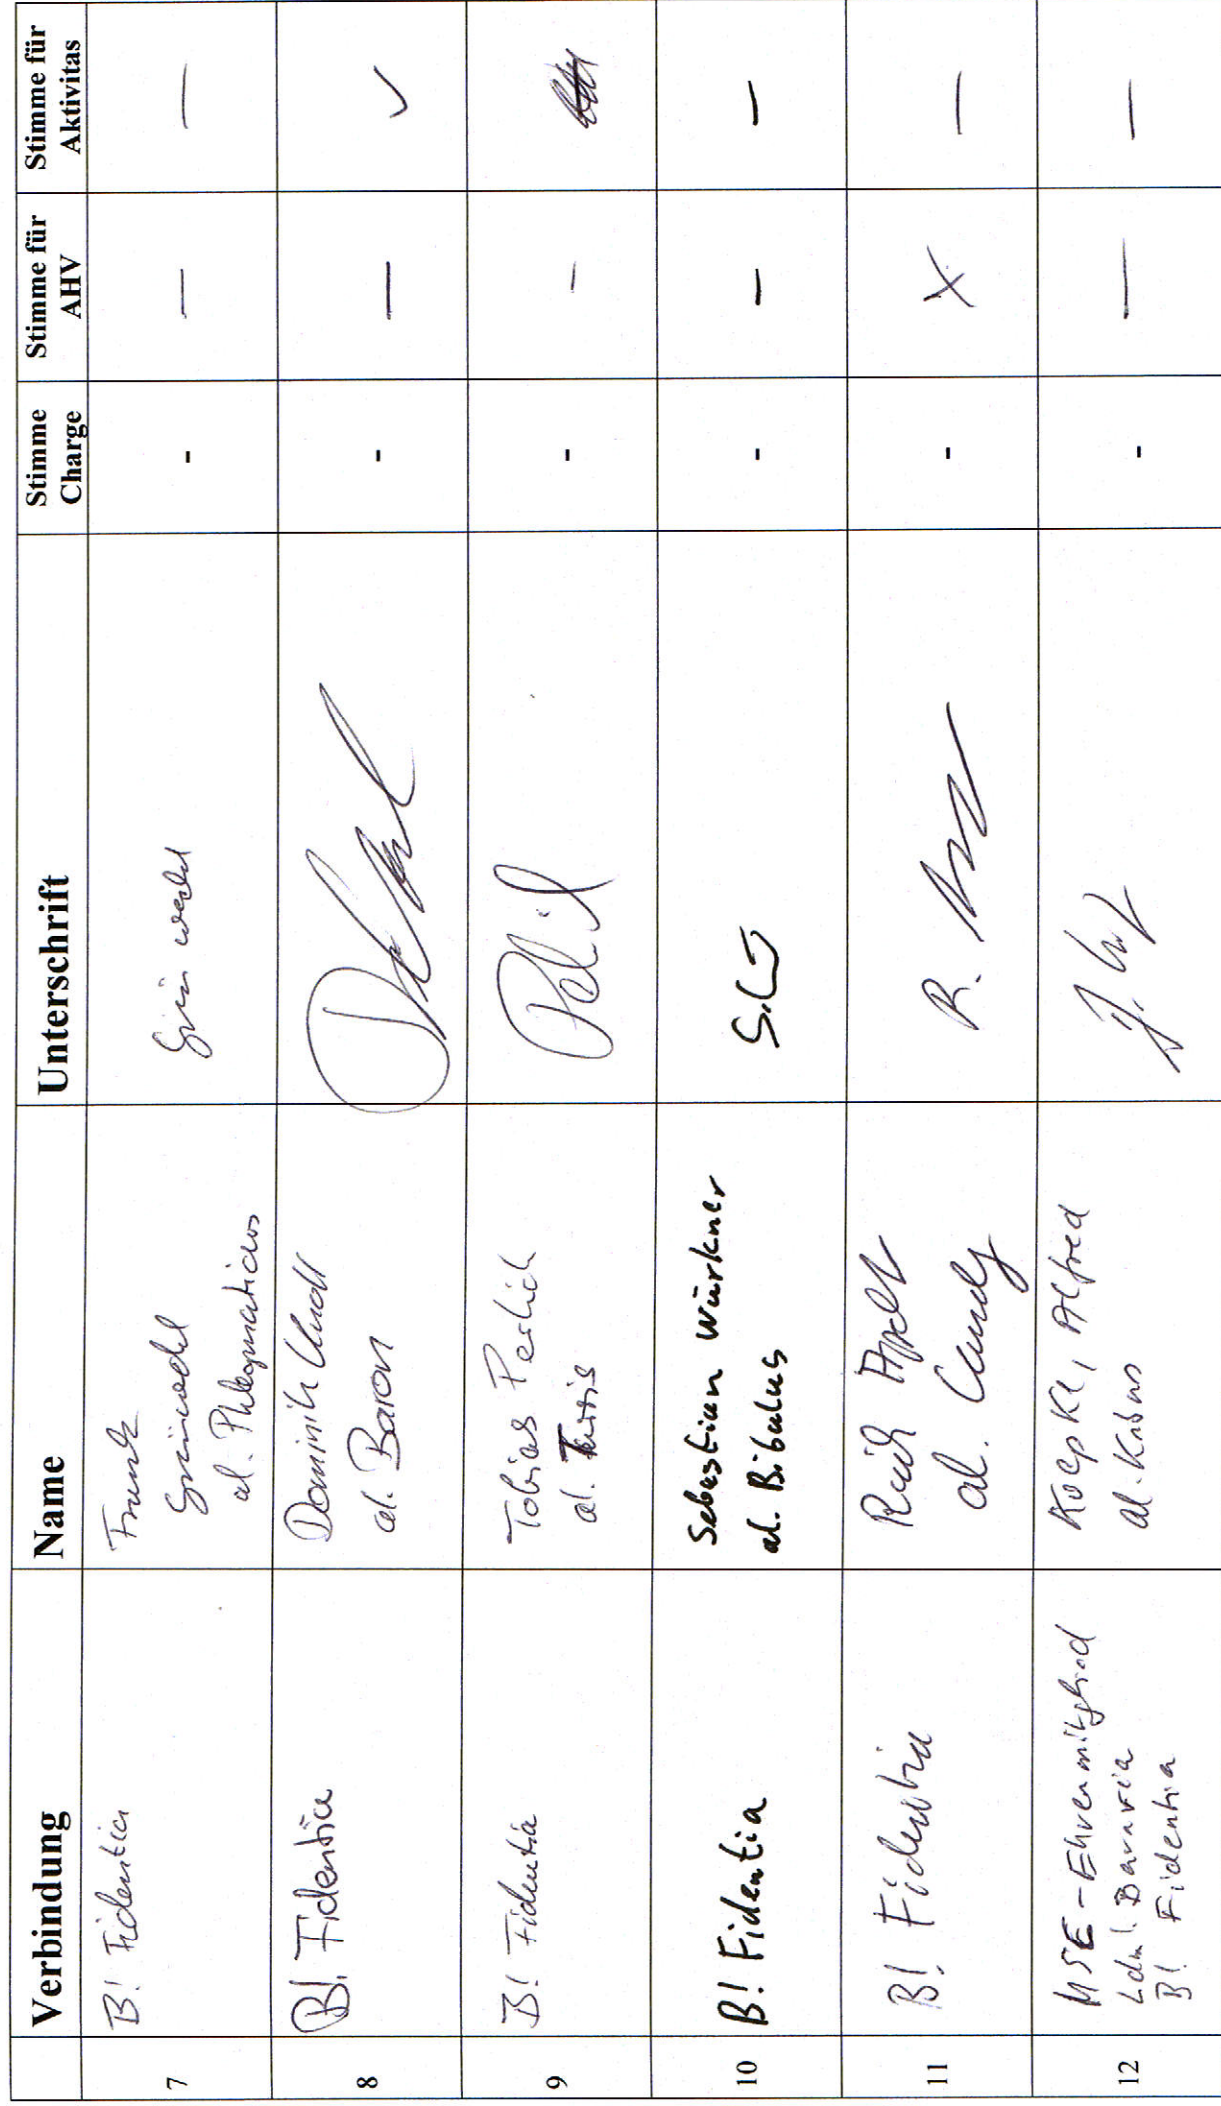 Verbindung
Name
Unterschrift
Stimme
Charge
Stimme für
AHV
Stimme für
Aktivitas
7
B! Fidentia
Frank
al. Phlegmaticus
-
—
—
8
B! Fidentia
Dominik
al. Baron
-
—
✓
9
B! Fidentia
Tobias Perlich
al.
-
-
10
B! Fidentia
Sebastian Würkner
al. Bibulus
-
—
—
11
B! Fidentia
al.
R.
-
X
—
12
MSE-Ehrenmitglied
Ldm! Bavaria
B! Fidentia
Alfred
al.
-
—
—